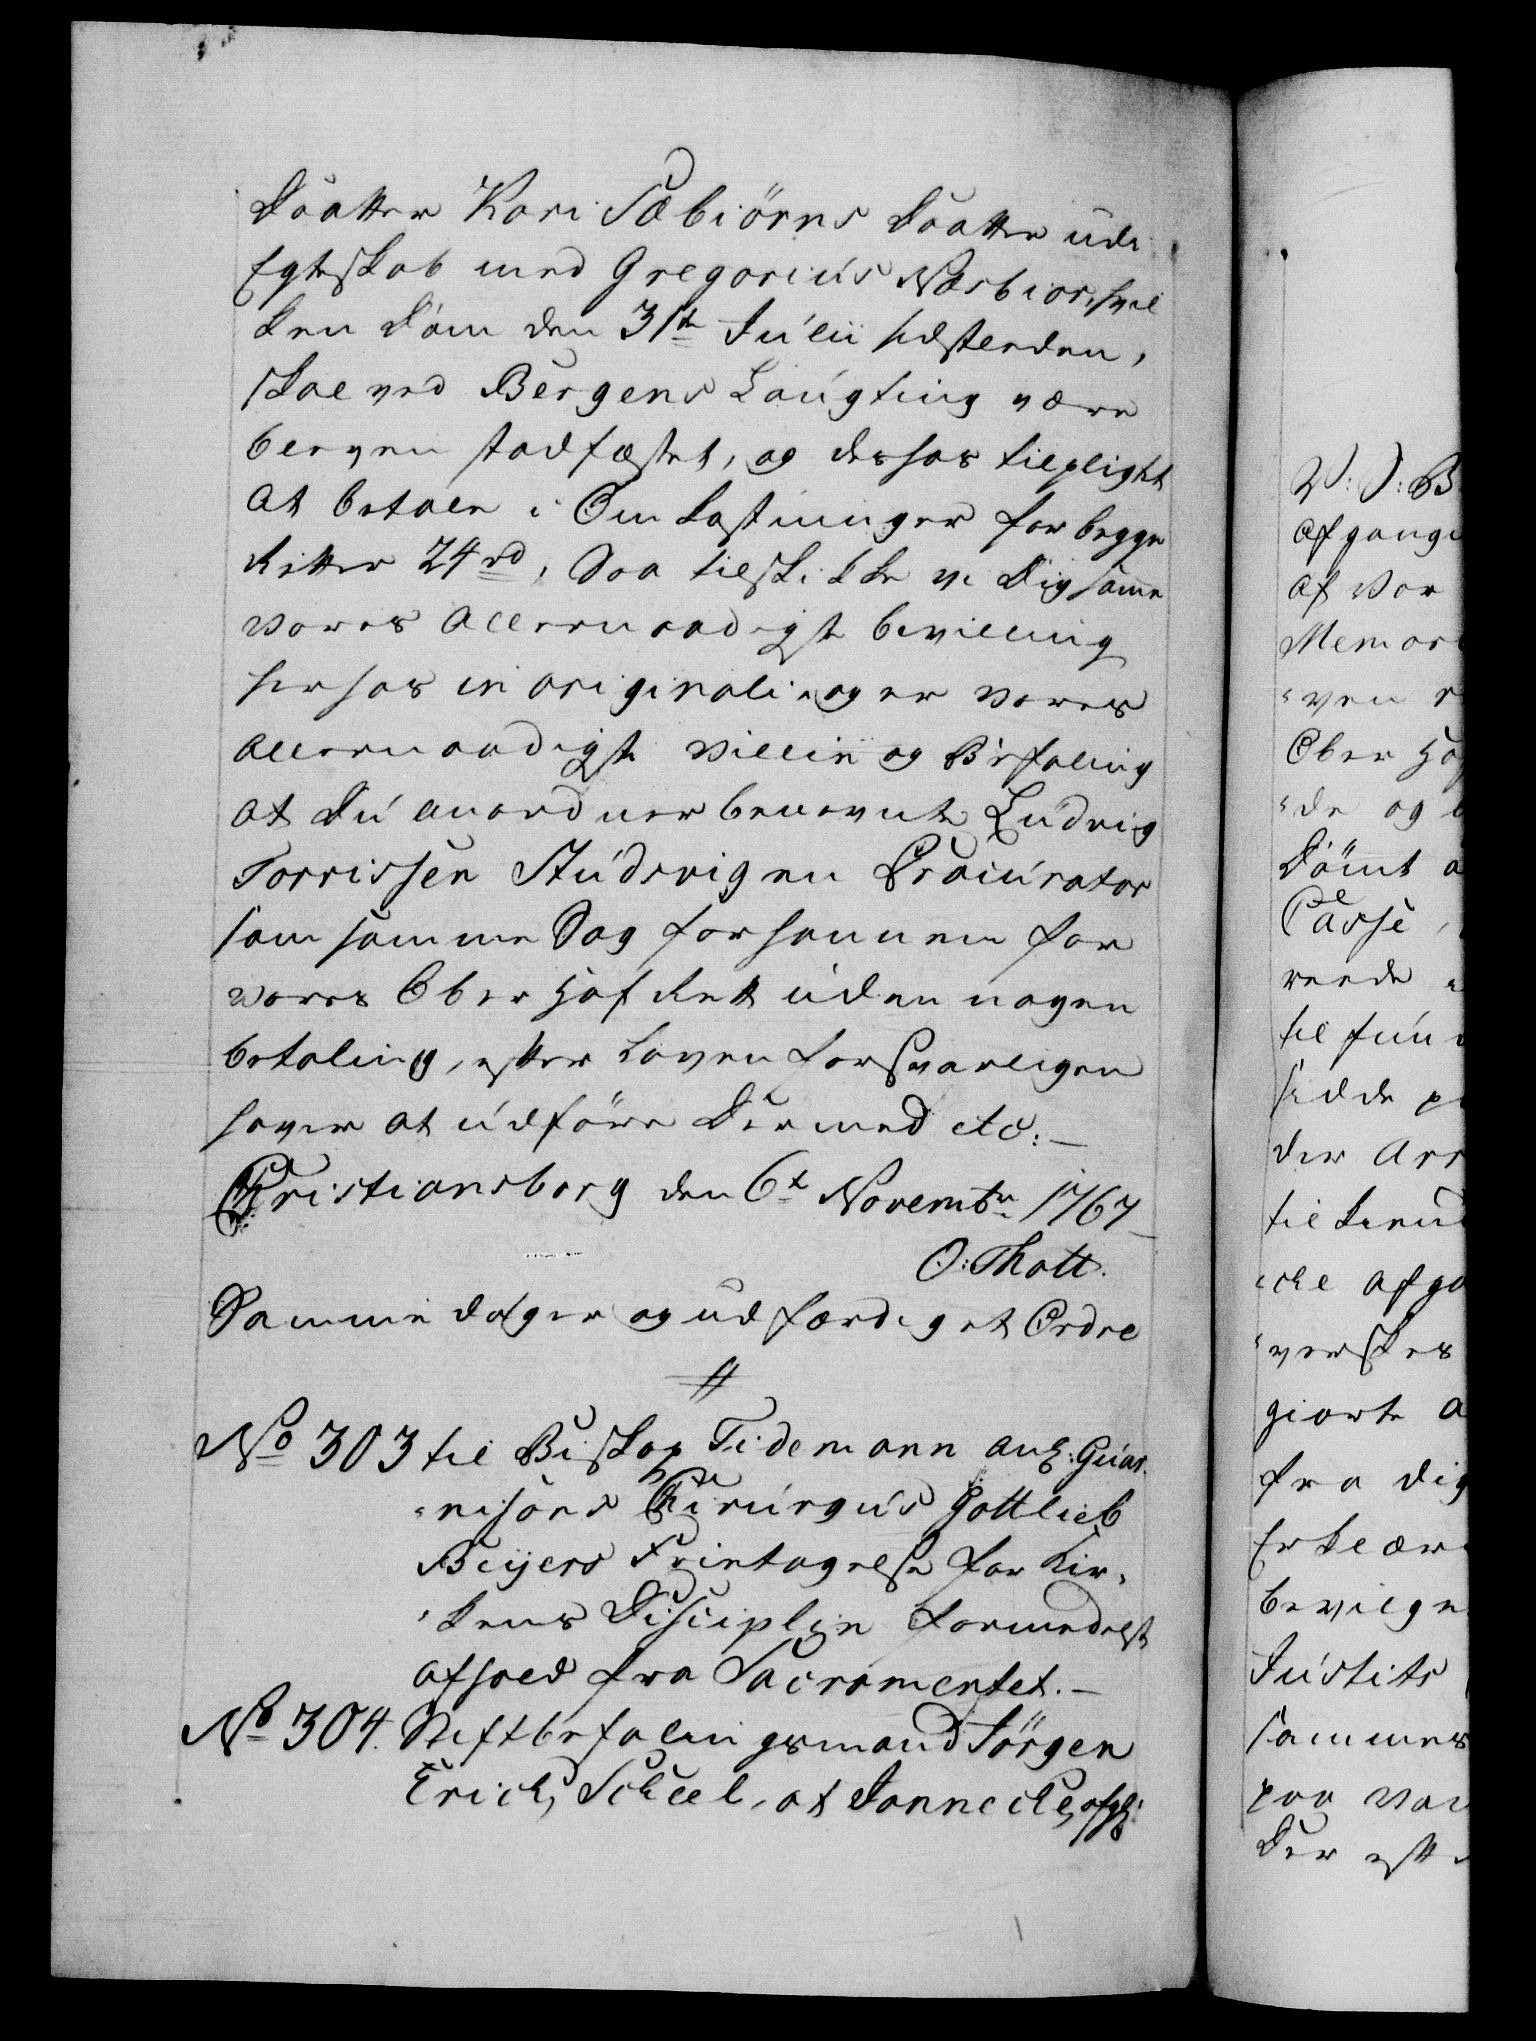 Daatter Kari Sæbiörns Daatter udi
Egteskab med Gregorius Næsbiør, hvil
ken Dom den 31te Julii sidstleden,
skal ved Bergens Laugting være
bleven stadfæstet, og deshos tilpligtet
at betale i Omkostninger for begge
Retter 24 rd, Saa tilskikke vi Dig samme
vores allernaadigste bevilling
herhos in originali, og er vores
allernaadigste villie og Befaling
at Du anordner benævnte Ludvig
Torrissen Studsvigen Procurator
som samme Sag for hannem for
vores Ober Hof Rett uden nogen
betaling, efter Loven forsvarligen
haver at udføre Dermed etc:
Christiansborg den 6te Novembr 1767
O: Thott.
Samme dag er og udfærdiget Ordre
No 303 til Biskop Tidemann ang: Guar
nisons Chirurgus Gottlieb
Beyers Fritagelse for Kir-
kens Disciplin formedelst
afhold fra Sacramentet.
No 304. Stiftbefalingsmand Jörgen
Erich Scheel, at Janneche afgl:
V: J: B
afgang
af vor
Memor
ven
Ober Hof
de og
Dömt
Casse,
til
der Arr
afga
giorte
fra dig
Erklær
bevilge
Justits
sammes
paa vor
Der eft